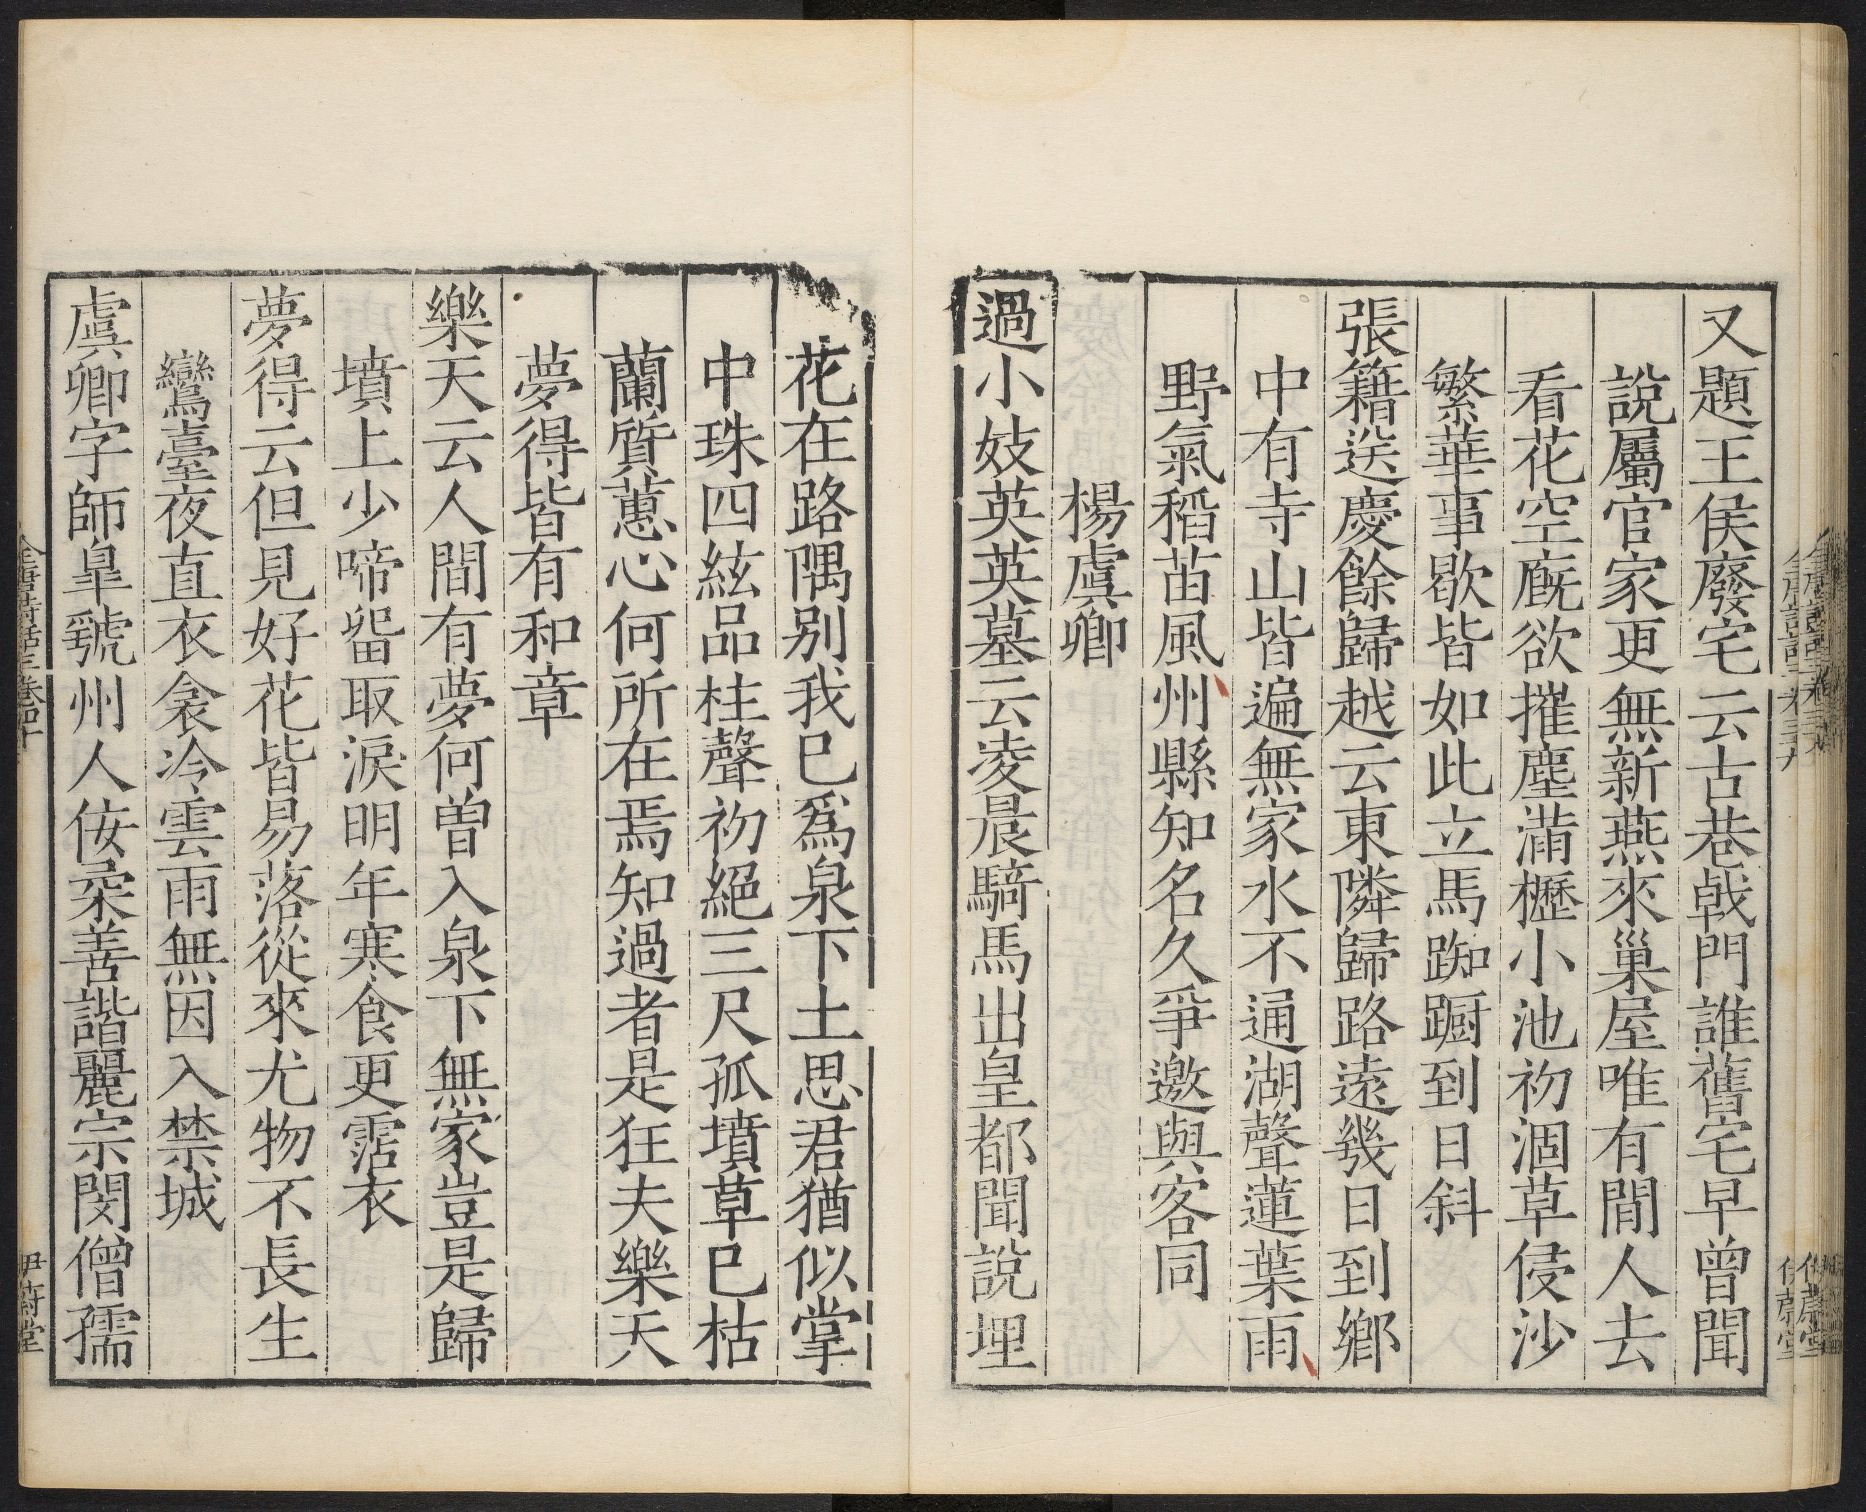 又題王侯廢宅云古巷戟門誰舊宅早曾聞
說屬官家更無新燕來巢屋唯有閒人去
看花空廐欲摧塵滿櫪小池初涸草侵沙
繁華事歇皆如此立馬踟躕到日斜
張籍送慶餘歸越云東隣歸路遠幾日到鄉
中有寺山皆遍無家水不通湖聲蓮葉雨
野氣稻苗風州縣知名久爭邀與客同
楊虞卿
過小妓英英墓云凌晨騎馬出皇都聞說埋
花在路隅别我已爲泉下土思君猶似掌
中珠四絃品柱聲初絕三尺孤墳草已枯
蘭質蕙心何所在焉知過者是狂夫樂天
夢得皆有和章
樂天云人間有夢何曽入泉下無家豈是歸
墳上少啼留取淚明年寒食更霑衣
夢得云但見好花皆易落從來尤物不長生
鸞臺夜直衣衾冷雲雨無因入禁城
虞卿字師臯虢州人佞柔善諧麗宗閔僧孺